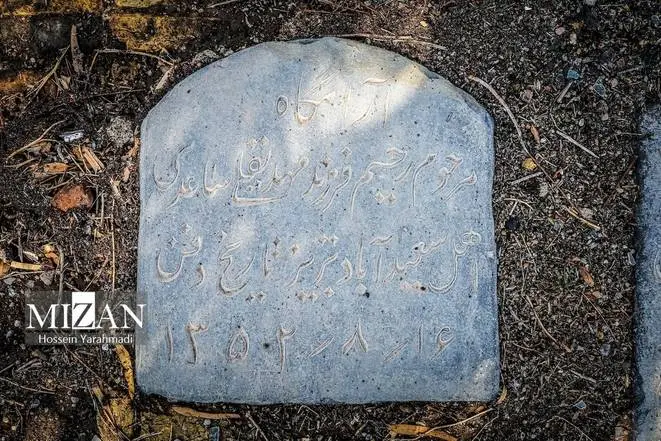 آرامگاه
مرحوم رحیم فرزند مهدیقلی ساعدی
اهل سعیدآباد تبریز تاریخ دفن
۱۳۵۲-۸-۱۶
MIZAN
Hossein Yarahmadi